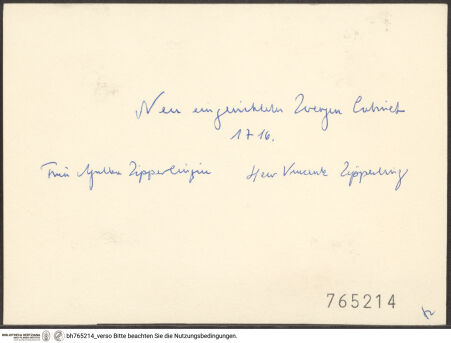 Neu eingerichtetes Zwergen Cabinet
1716.
Frau Zipperlingin Herr Vincentz Zipperling
765214
BIBLIOTHECA HERTZIANA
bh765214_verso Bitte beachten Sie die Nutzungsbedingungen.